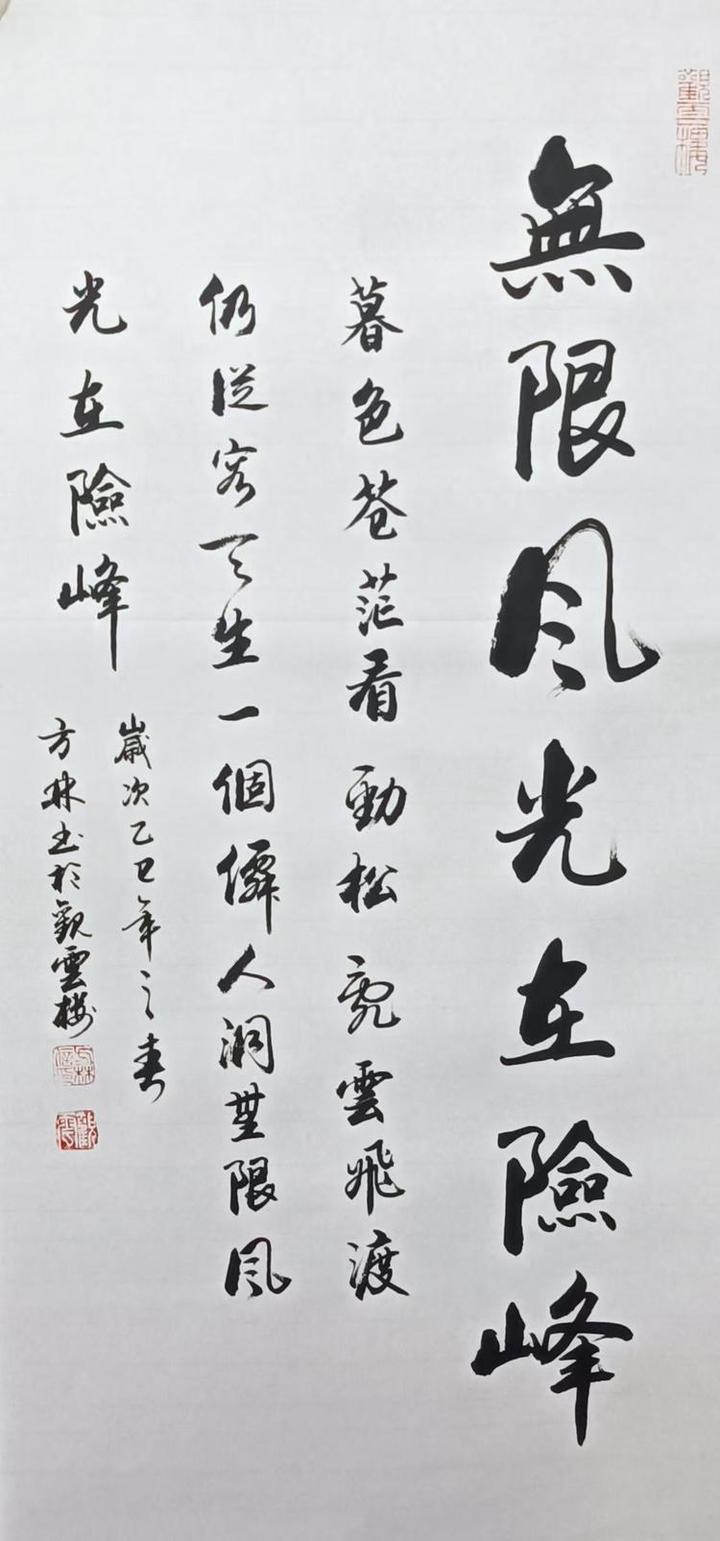 觀雲樓
無限风光在險峰
暮色苍茫看勁松亂雲飛渡
仍從容天生一個僊人洞無限风
光在險峰
歲次乙巳年之春
方林书於觀雲樓
方林
觀雲